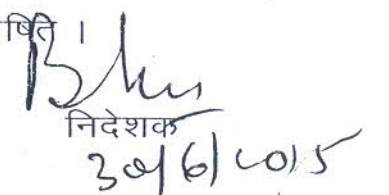 षित ।
निदेशक
30/6/2015